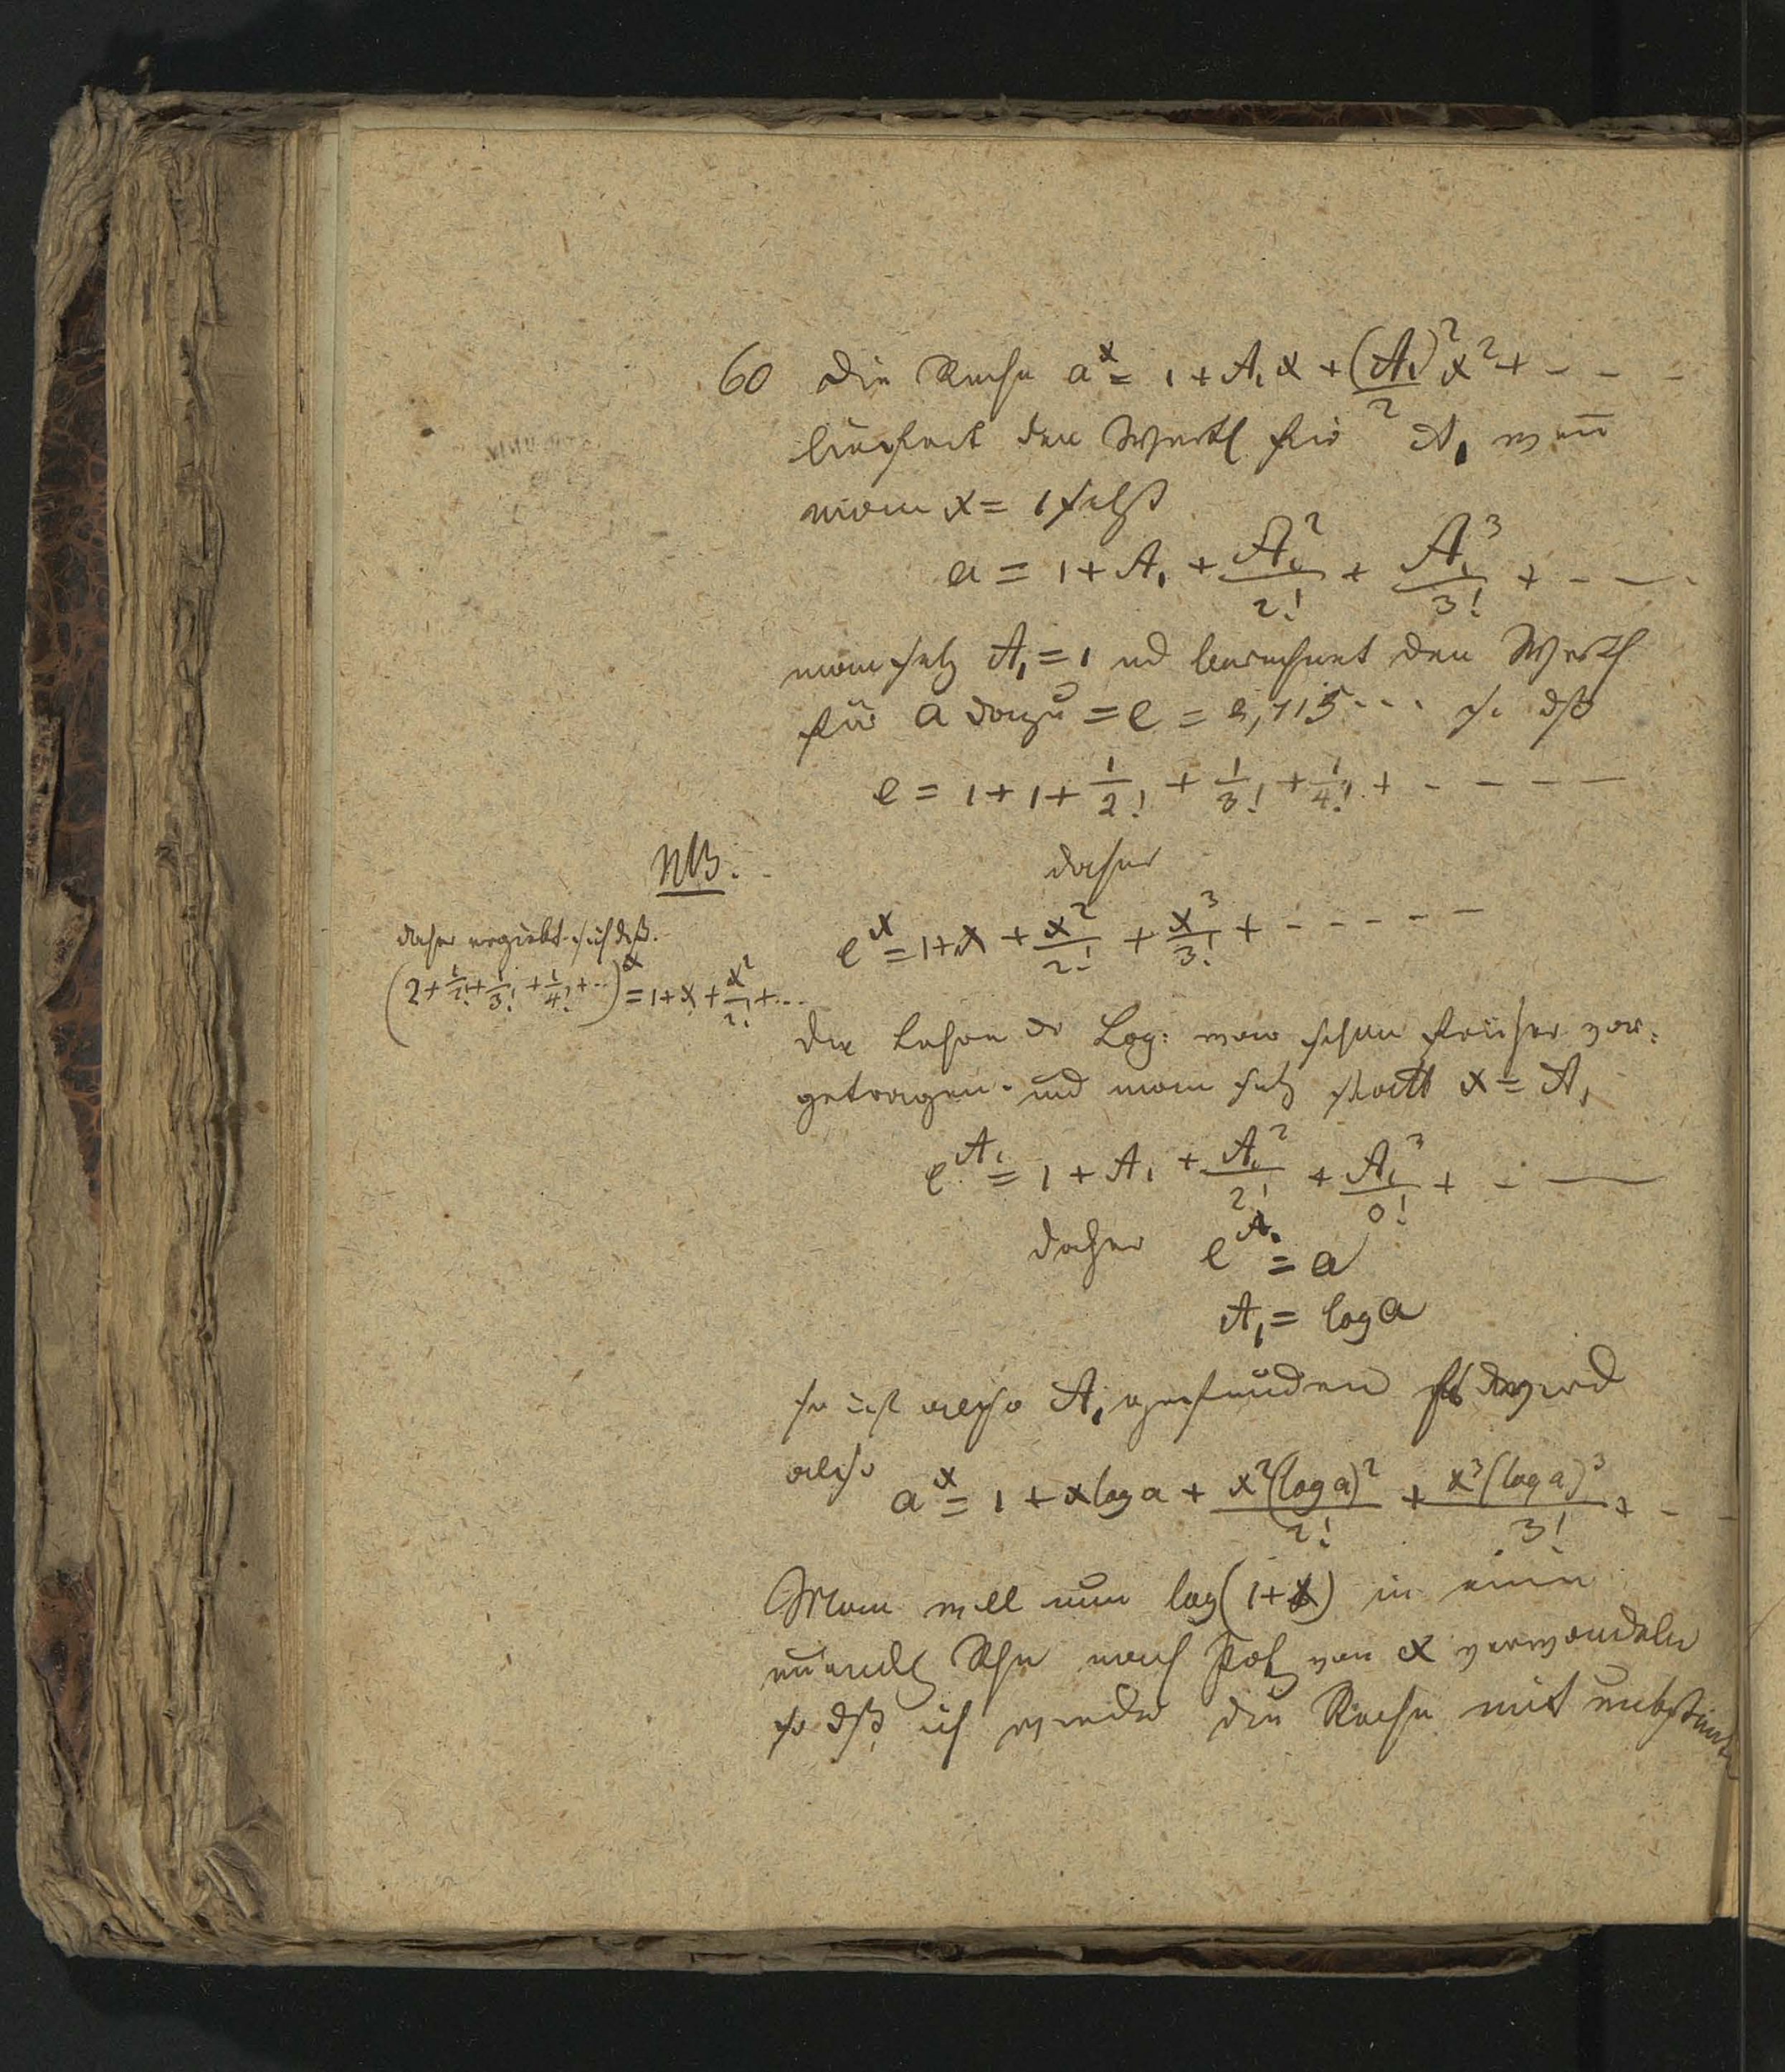 60 Die Reihe a^x = 1 + A₁x + (A₁)²/2 x² + - - -
liefert den Werth für A₁ wen̄
man x = 1 setzt
a = 1 + A₁ + A₁²/2! + A₁³/3! + - - -
man setz A₁ = 1 und berechnet den Werth
für a dazu = e = 2,715... so dß
e = 1 + 1 + 1/2! + 1/3! + 1/4! + - - - -
daher
e^x = 1 + x + x²/2! + x³/3! + - - - - -
NB.
daher ergiebt sich dß.
(2 + 1/2! + 1/3! + 1/4! + ..)^x = 1 + x + x²/2! + ...
die Lehre der Log: war schon früher vor:
getragen. und man setz statt x = A₁
e^A₁ = 1 + A₁ + A₁²/2! + A₁³/3! + - -
daher e^A₁ = a
A₁ = log a
so ist also A₁ gefunden wird
also a^x = 1 + x log a + x²(log a)²/2! + x³(log a)³/3! + - -
Man will nun log(1+x) in eine
unendl Rhe nach Pot von x verwandeln
so dß ich wieder die Reihe mit unbestimten